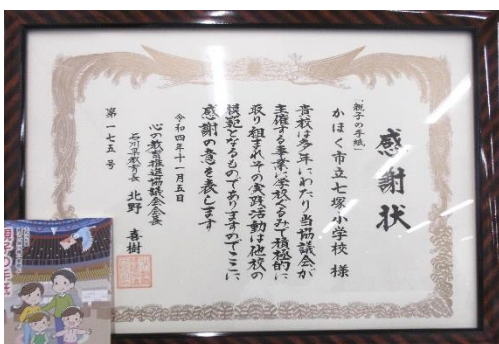 感謝状
「親子の手紙」
かほく市立七塚小学校 様
貴校は多年にわたり当協議会が
主催する事業に学校ぐるみで積極的に
取り組まれその実践活動は他校の
模範となるものでありますのでここに
感謝の意を表します
令和四年十一月五日
心の教育推進協議会会長
石川県教育長 北野 喜樹
第一七五号
親子の手紙